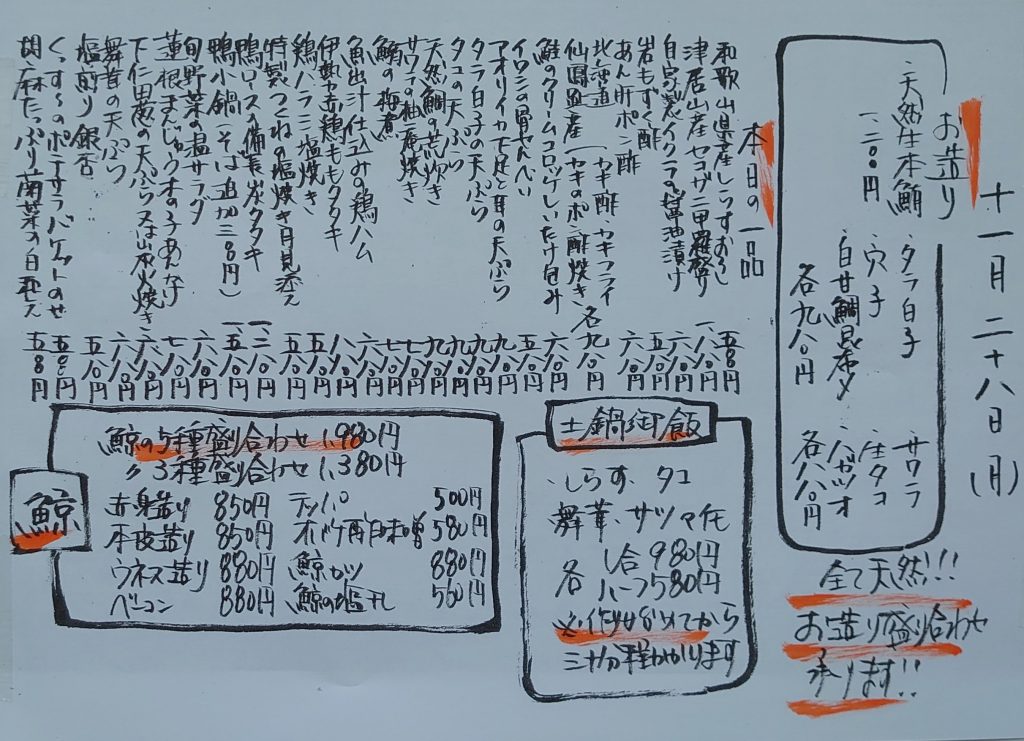 十一月二十八日(月)
お造り
天然生本鮪
一、二〇〇円
タラ白子
穴子
白甘鯛昆布〆
各九八〇円
サワラ
庄タコ
ハガツオ
各八八〇円
全て天然!!!
お造り盛り合わせ
承ります!!
本日の一品
和歌山県産しらすおろし 五八〇円
津居山産セコガニ甲羅盛り 一、八〇円
自家製イクラの醤油漬け 六八〇円
岩もずく酢 五八〇円
あん肝ポン酢 六八〇円
北海道 (カキ酢 カキフライ
仙鳳趾産 (カキのポン酢焼き 各九八〇円
鮭のクリームコロッケしいたけ包み 六八〇円
イワシの骨せんべい 五八〇円
アオリイカ下足と耳の天ぷら 九八〇円
タラ白子の天ぷら 九八〇円
タコの天ぷら 九八〇円
天然鯛の荒炊き 九八〇円
サワラの柚庵焼き 九八〇円
鰯の梅煮 七八〇円
魚出汁仕込みの鶏ハム 六八〇円
伊勢赤鶏ももタタキ 八八〇円
鶏ハラミ塩焼き 五八〇円
特製つくねの塩焼き月見添え 五八〇円
鴨ロースの備長炭タタキ 一、二八〇円
鴨小鍋(そば追加三〇〇円) 一、五八〇円
旬野菜の温サラダ 六八〇円
蓮根まんじゅうオの子あんかけ 七八〇円
下仁田葱の天ぷら又は炭火焼き 六八〇円
舞茸の天ぷら 六八〇円
塩煎り銀杏 五八〇円
くっすーのポテサラバケットのせ 五八〇円
胡麻たっぷり菊菜の白和え 五八〇円
土鍋御飯
しらす、タコ
舞茸、サツマ芋
各 一合980円
ハーフ580円
※作りはじめてから
三十分程かかります
鯨
鯨の5種盛り合わせ 1,980円
〃 3種盛り合わせ 1,380円
赤身造り 850円
本皮造り 850円
ウネス造り 880円
ベーコン 880円
テッパ 500円
オバケ酢味噌 580円
鯨カツ 880円
鯨の塩干し 560円